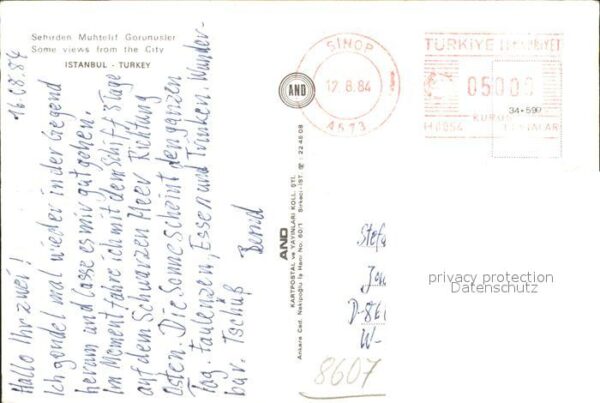 Sehirden Muhtelif Gorunusler
Some views from the City
ISTANBUL - TURKEY
16.08.84
Hallo Ihr zwei!
Ich gondel mal wieder in der Gegend
herum und lasse es mir gut gehen.
Im Moment fahre ich mit dem Schiff 3 Tage
auf dem Schwarzen Meer Richtung
Osten. Die Sonne scheint den ganzen
Tag. Faulenzen, Essen und Trinken. Wunder-
bar. Tschüß Bernd
AND
AND
KARTPOSTAL ve YAYINLARI KOLL. ŞTİ.
Ankara Cad. Nakipoğlu İş Hanı No. 60/1 Sirkeci-IST. 22 48 08
SİNOP
17.8.84
4573
TÜRKİYE
05000
KURUŞ
34+590
Stefa
D-861
W-
8607
privacy protection
Datenschutz